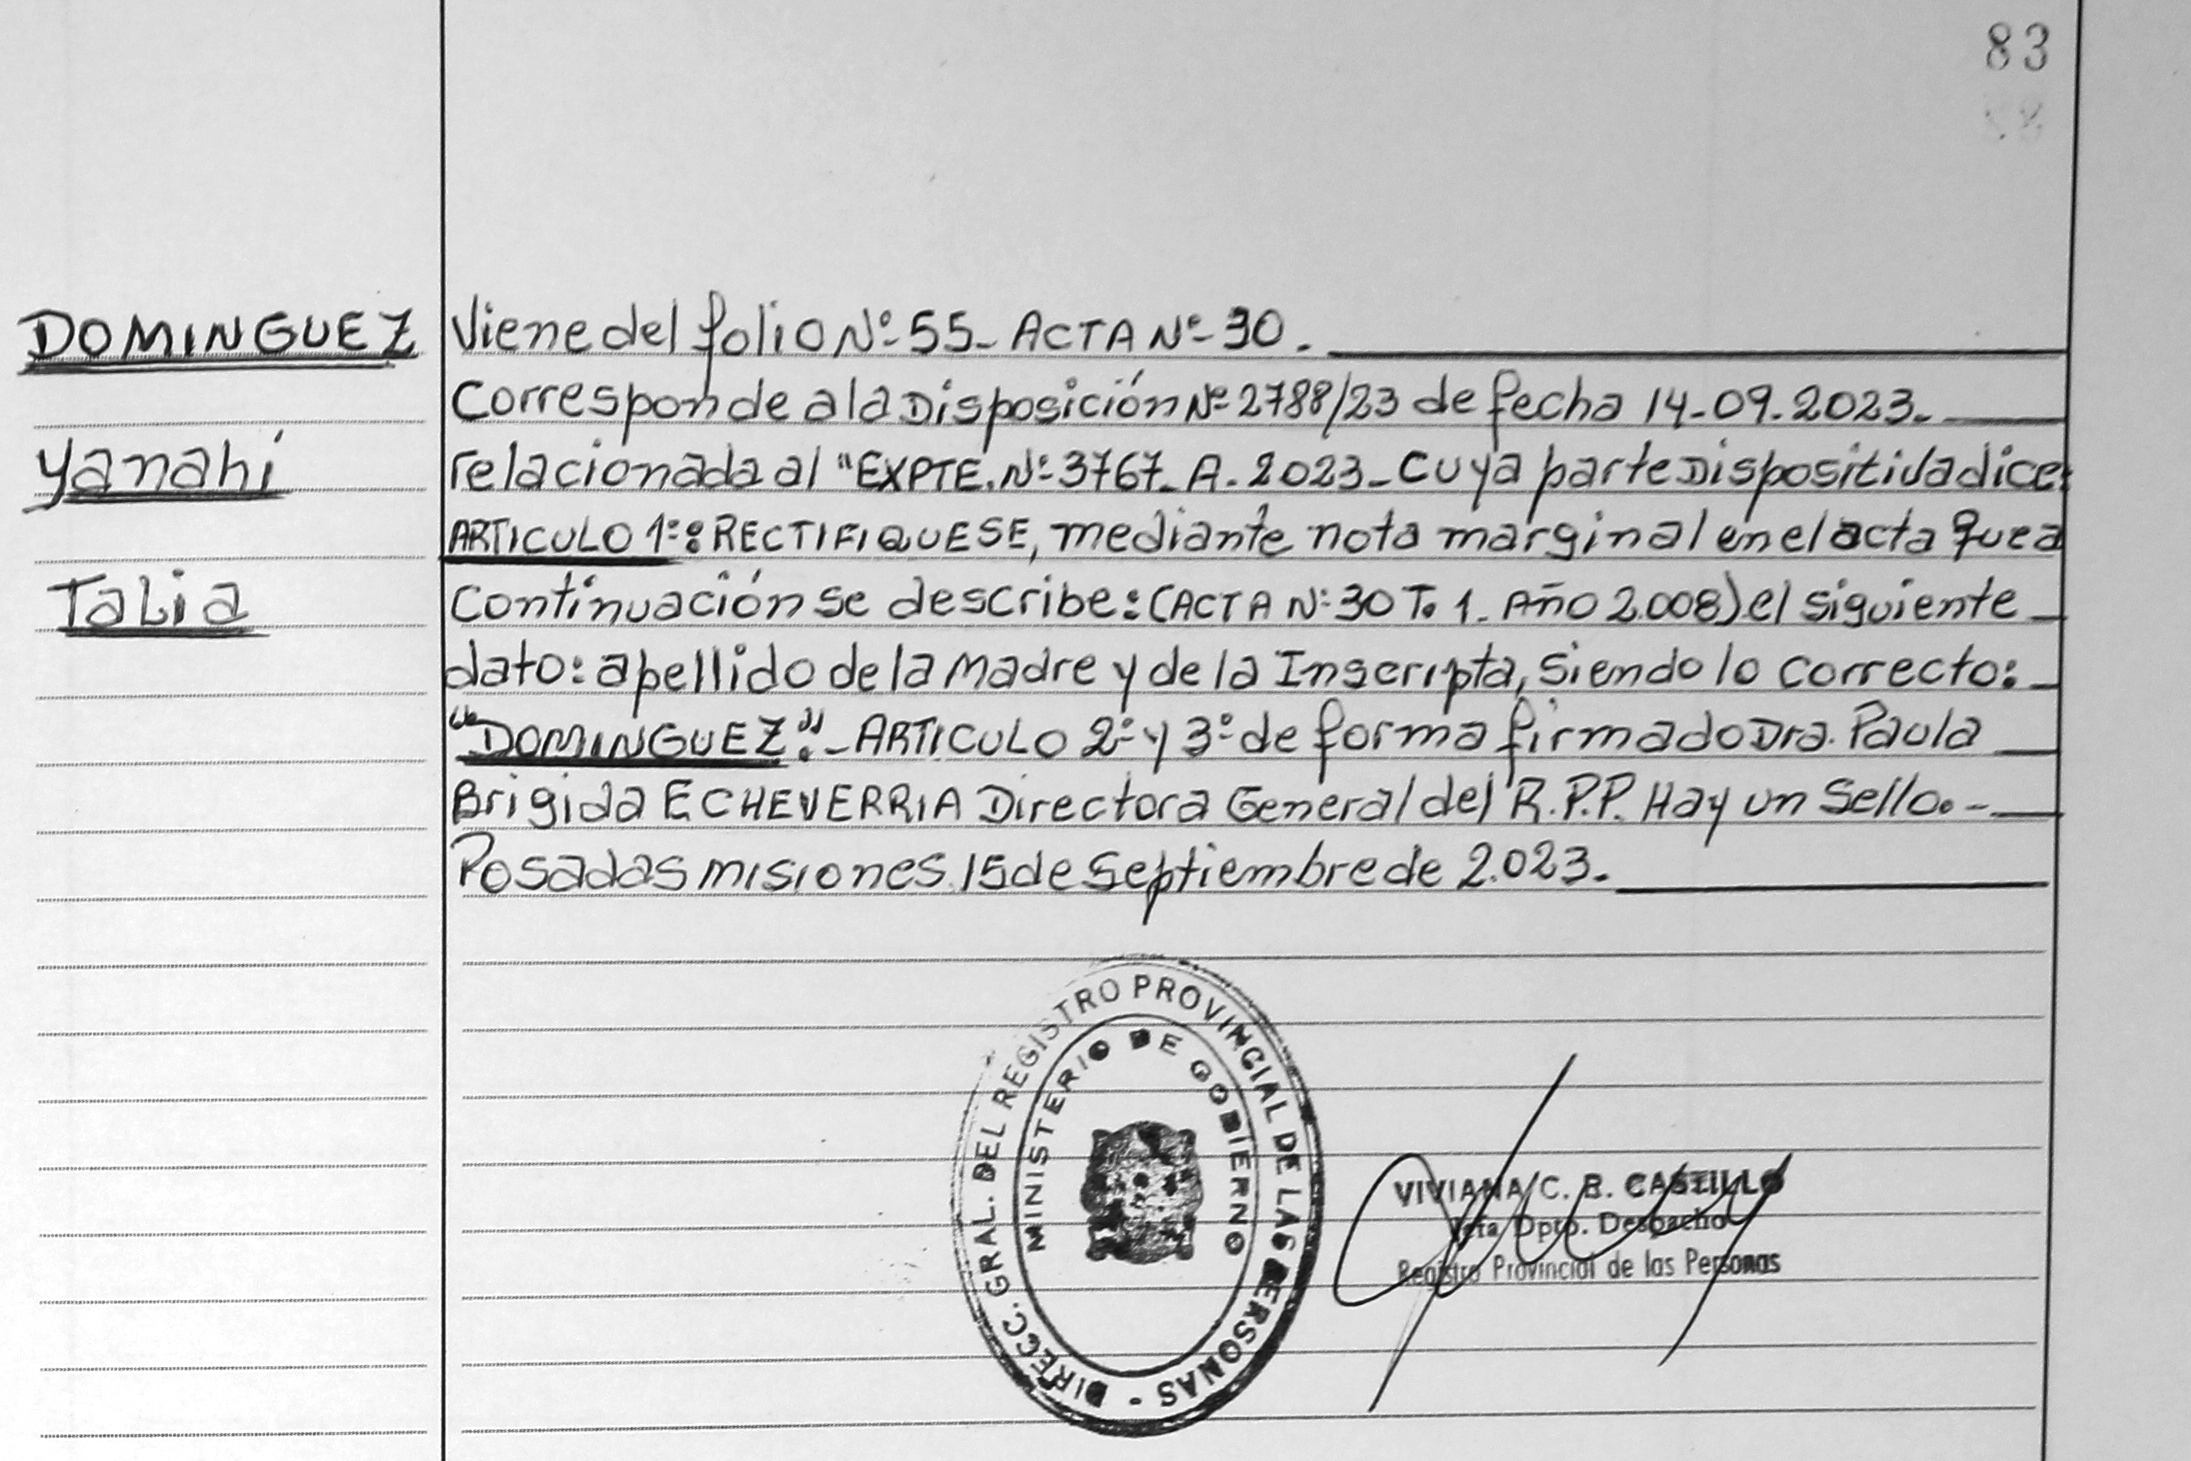 83
DOMINGUEZ
Yanahí
Talia
Viene del folio Nº 55- ACTA Nº 30.
Corresponde a la Disposición Nº 2788/23 de fecha 14-09-2023-
relacionada al "EXPTE. Nº 3767- A- 2023- Cuya parte Dispositiva dice:
ARTICULO 1º: RECTIFIQUESE, mediante nota marginal en el acta que a
Continuación se describe: (ACTA Nº 30 Tº 1- Año 2.008) el siguiente
dato: apellido de la Madre y de la Inscripta, Siendo lo correcto:
"DOMINGUEZ"- ARTICULO 2º y 3º de forma firmado Dra. Paula
Brigida ECHEVERRIA Directora General del R.P.P. Hay un Sello.-
Posadas misiones 15 de Septiembre de 2.023.
DIRECC. GRAL. DEL REGISTRO PROVINCIAL DE LAS PERSONAS -
MINISTERIO DE GOBIERNO
VIVIANA C. B. CASTILLO
Jefa Dpto. Despacho
Registro Provincial de las Personas